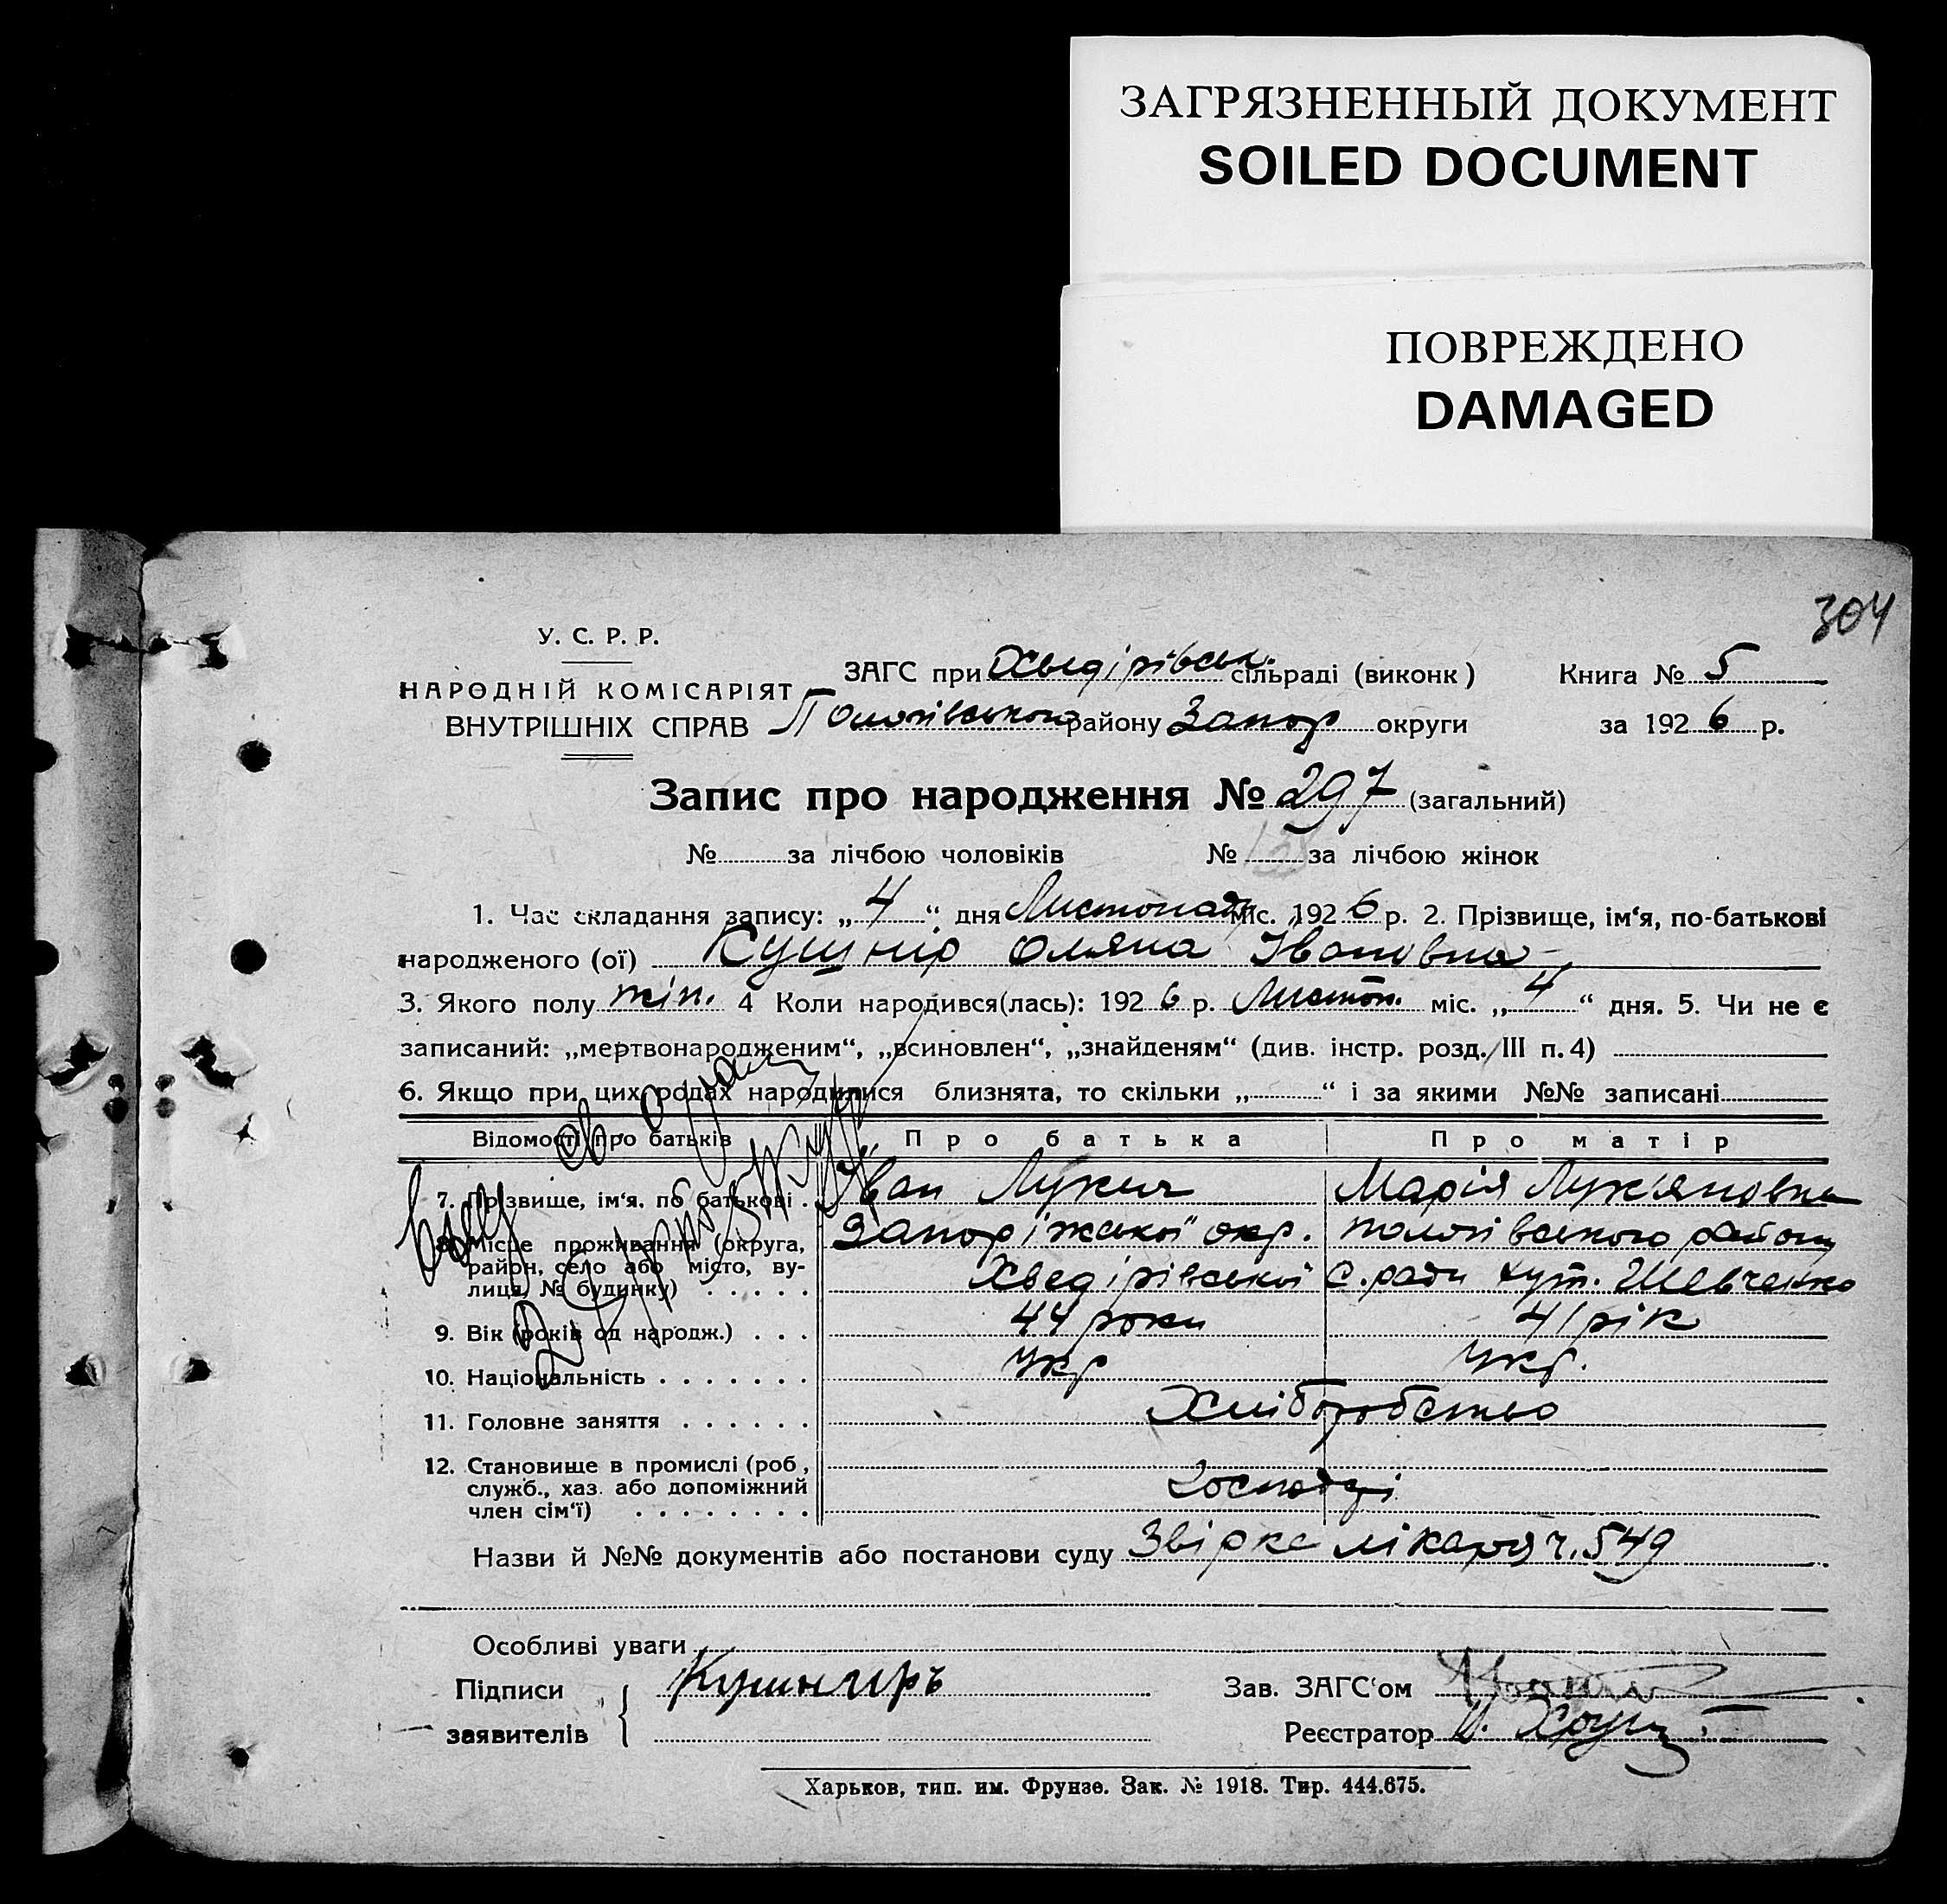 ЗАГРЯЗНЕННЫЙ ДОКУМЕНТ
SOILED DOCUMENT
ПОВРЕЖДЕНО
DAMAGED
304
У. С. Р. Р.
НАРОДНІЙ КОМІСАРІЯТ
ВНУТРІШНІХ СПРАВ
ЗАГС при Хведірівськ. сільраді (виконк) Книга № 5
Пологівського району Запор округи за 1926 р.
Запис про народження № 297 (загальний)
№ за лічбою чоловіків № за лічбою жінок
1. Час складання запису: „4“ дня Листопаду міс. 1926 р. 2. Прізвище, ім‘я, по-батькові
народженого (ої) Кушнір Оляна Івановна
3. Якого полу жін. 4 Коли народився(лась): 1926 р. Листоп. міс. „4“ дня. 5. Чи не є
записаний: „мертвонародженим“, „всиновлен“, „знайденям“ (див. інстр. розд. III п. 4)
6. Якщо при цих родах народилися близнята, то скільки „ “ і за якими №№ записані
Відомості про батьків Про батька Про матір
7. Прізвище, ім‘я, по батькові . Іван Лукич Марія Лук‘яновна
8. Місце проживання (округа, Запоріжської окр. пологівського району
район, село або місто, ву- Хведірівської с. ради хут. Шевченко
лиця, № будинку) . . . . .
9. Вік (років од народж.) . . . 44 роки 41 рік
10. Національність . . . . . . . Укр Укр.
11. Головне заняття . . . . . . Хліборобство
12. Становище в промислі (роб,
служб., хаз. або допоміжний Господарі
член сім‘ї) . . . . . . . .
Назви й №№ документів або постанови суду Звірка лікаря ч. 549
Особливі уваги
Підписи Кушниръ Зав. ЗАГС‘ом
заявителів Реєстратор
Харьков, тип. им. Фрунзе. Зак. № 1918. Тир. 444.675.